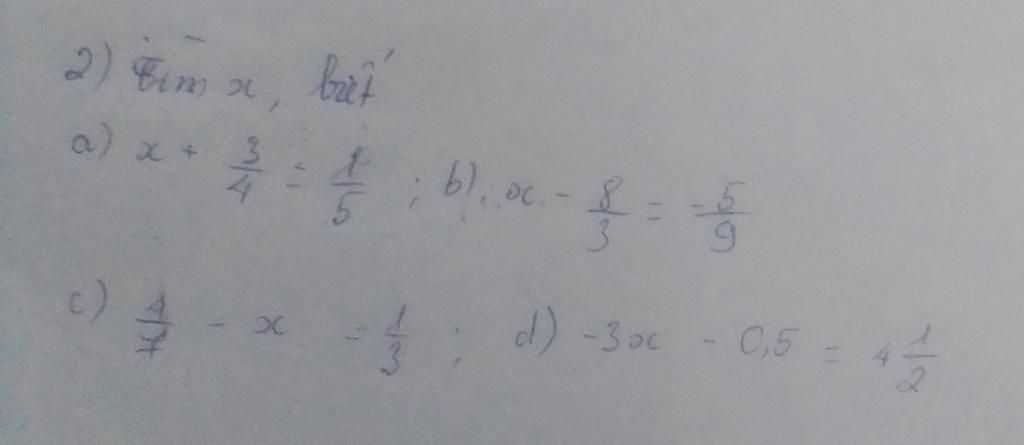 2) Tìm x, biết
a) x + 3/4 = 1/5 ; b) x - 8/3 = -5/9
c) 1/7 - x = 1/3 ; d) -3x - 0,5 = 1 1/2